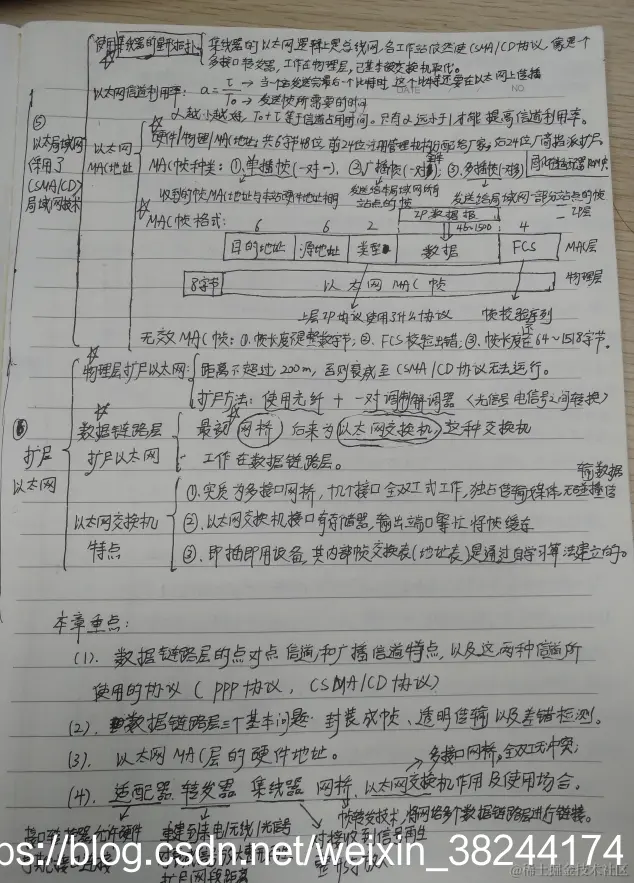 使用集线器的星形拓扑 集线器的以太网逻辑上是总线网,各工作站依然使CSMA/CD协议,像是个
多接口转发器,工作在物理层,已基本被交换机取代。
以太网信道利用率: a=τ/T₀ → 当一个站发送完最后一个比特时,这个比特还要在以太网上传播
→ 发送帧所需要的时间
a越小越好,T₀+τ等于信道占用时间。只有a远小于1才能提高信道利用率。
⑤
以太局域网
(采用了
CSMA/CD)
局域网技术
以太网
MAC地址
硬件/物理/MAC地址:共6字节48位,前24位注册管理机构分配给厂家,后24位厂商指派扩展。
MAC帧种类:①,单播帧(一对一),②广播帧(一对全体),③,多播帧(一对多)
收到的帧MAC地址与本站硬件地址相同
发送给本局域网所有
站点的帧
发送给局域网一部分站点的帧
MAC帧格式: 6 6 2 46~1500 4
IP数据报 IP层
目的地址 源地址 类型 数据 FCS MAC层
8字节 以太网MAC帧 物理层
上层IP协议使用了什么协议 帧校验序列
无效MAC帧:①,帧长度不是整数字节;②,FCS校验出错;③,帧长度在64~1518字节。
⑥
扩展
以太网
物理层扩展以太网:
距离不超过200m,否则衰减至CSMA/CD协议无法运行。
扩展方法:使用光纤+一对调制解调器〈光信号电信号之间转换〉
数据链路层
扩展以太网
最初网桥后来为以太网交换机这种交换机
工作在数据链路层。
以太网交换机
特点
①,实质为多接口网桥,十几个接口全双工式工作,独占传输媒体,无碰撞传
输数据
②,以太网交换机接口有存储器,输出端口繁忙将帧缓存
③,即插即用设备,其内部帧交换表(地址表)是通过自学习算法建立的。
本章重点:
(1).数据链路层的点对点信道和广播信道特点,以及这两种信道所
使用的协议(PPP协议,CSMA/CD协议)
(2).数据链路层三个基本问题:封装成帧、透明传输以及差错检测。
(3).以太网MAC层的硬件地址。
→多接口网桥,全双工无冲突;
(4).适配器 转发器 集线器 网桥,以太网交换机作用及使用场合。
帧转发技术,将网络多个数据链路层进行链接。
允许硬件
重建到来电/无线/光信号
对接收到信号再生
扩展网段距离
ps://blog.csdn.net/weixin_38244174
@稀土掘金技术社区